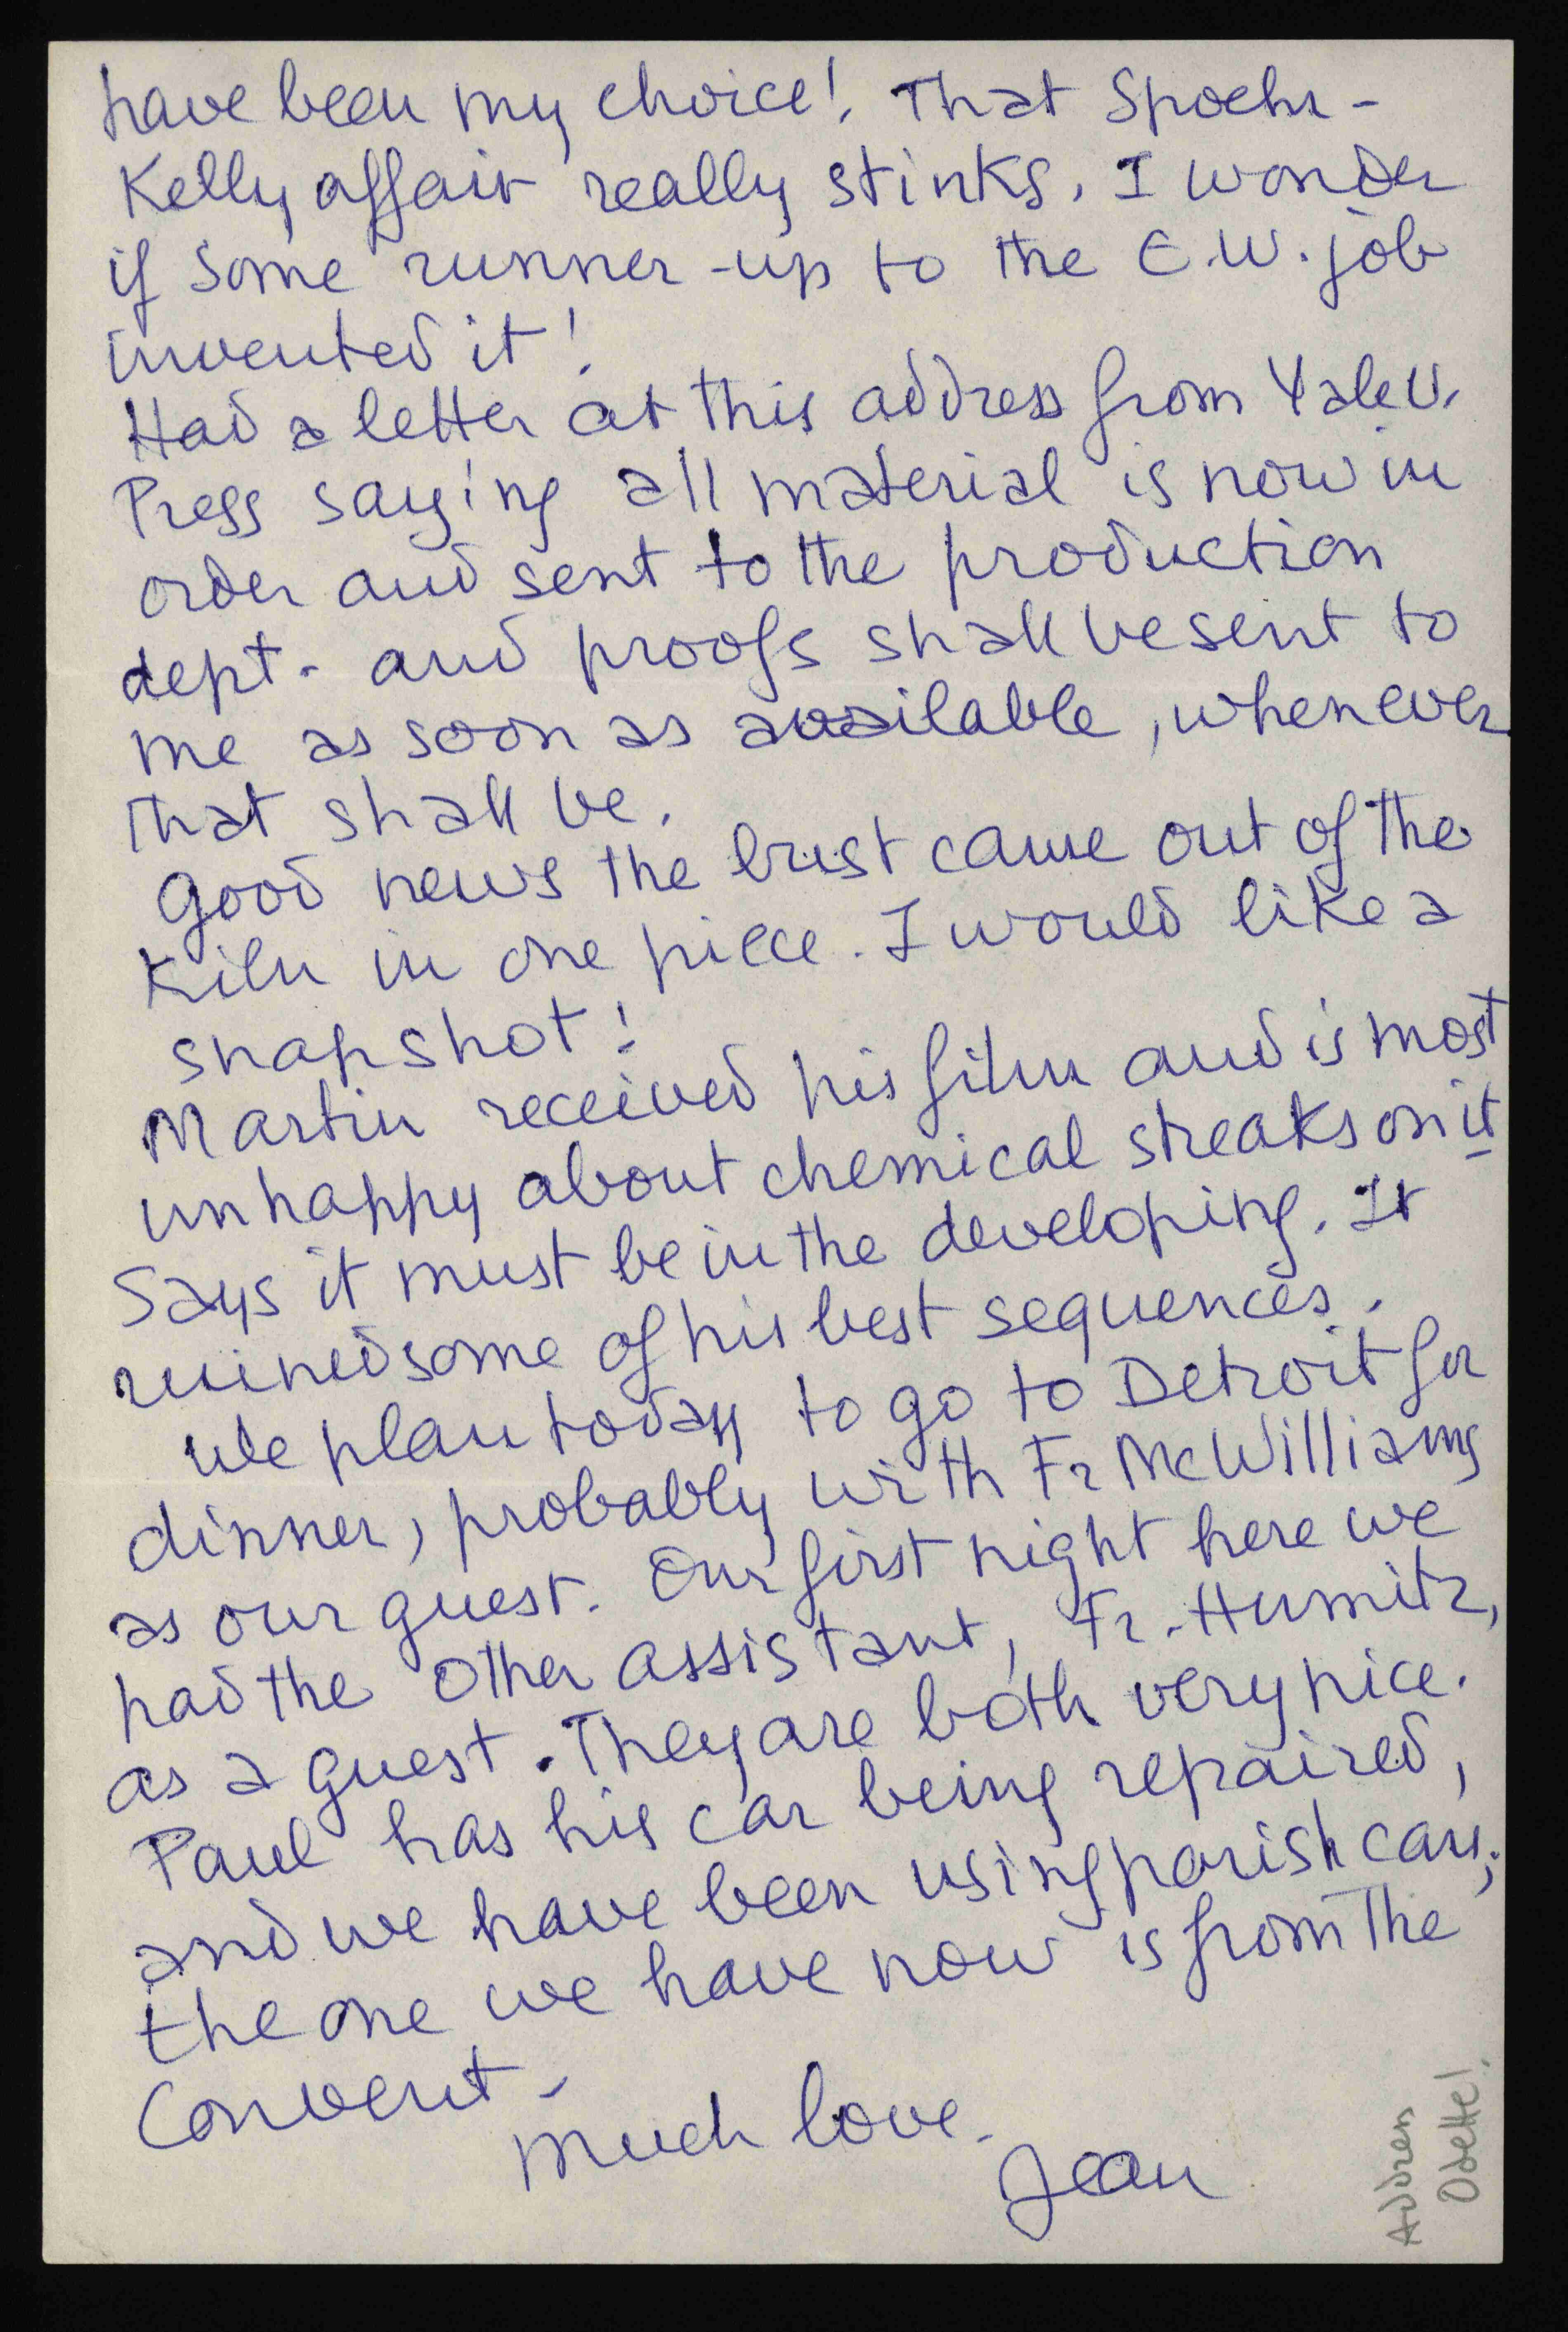 have been my choice! That Spoehr-
Kelly affair really stinks. I wonder
if some runner-up to the E.W. job
invented it!
Had a letter at this address from Yale U.
Press saying all material is now in
order and sent to the production
dept. and proofs shall be sent to
me as soon as available, whenever
that shall be.
Good news the bust came out of the
Kiln in one piece. I would like a
snapshot!
Martin received his film and is most
unhappy about chemical streaks on it
Says it must be in the developing. It
ruined some of his best sequences.
We plan today to go to Detroit for
dinner, probably with Fr McWilliams
as our guest. Our first night here we
had the other assistant, Fr. Humitz,
as a guest. They are both very nice.
Paul has his car being repaired,
and we have been using parish cars;
the one we have now is from the
Convent-
Much love.
Jean
Address
Odette!